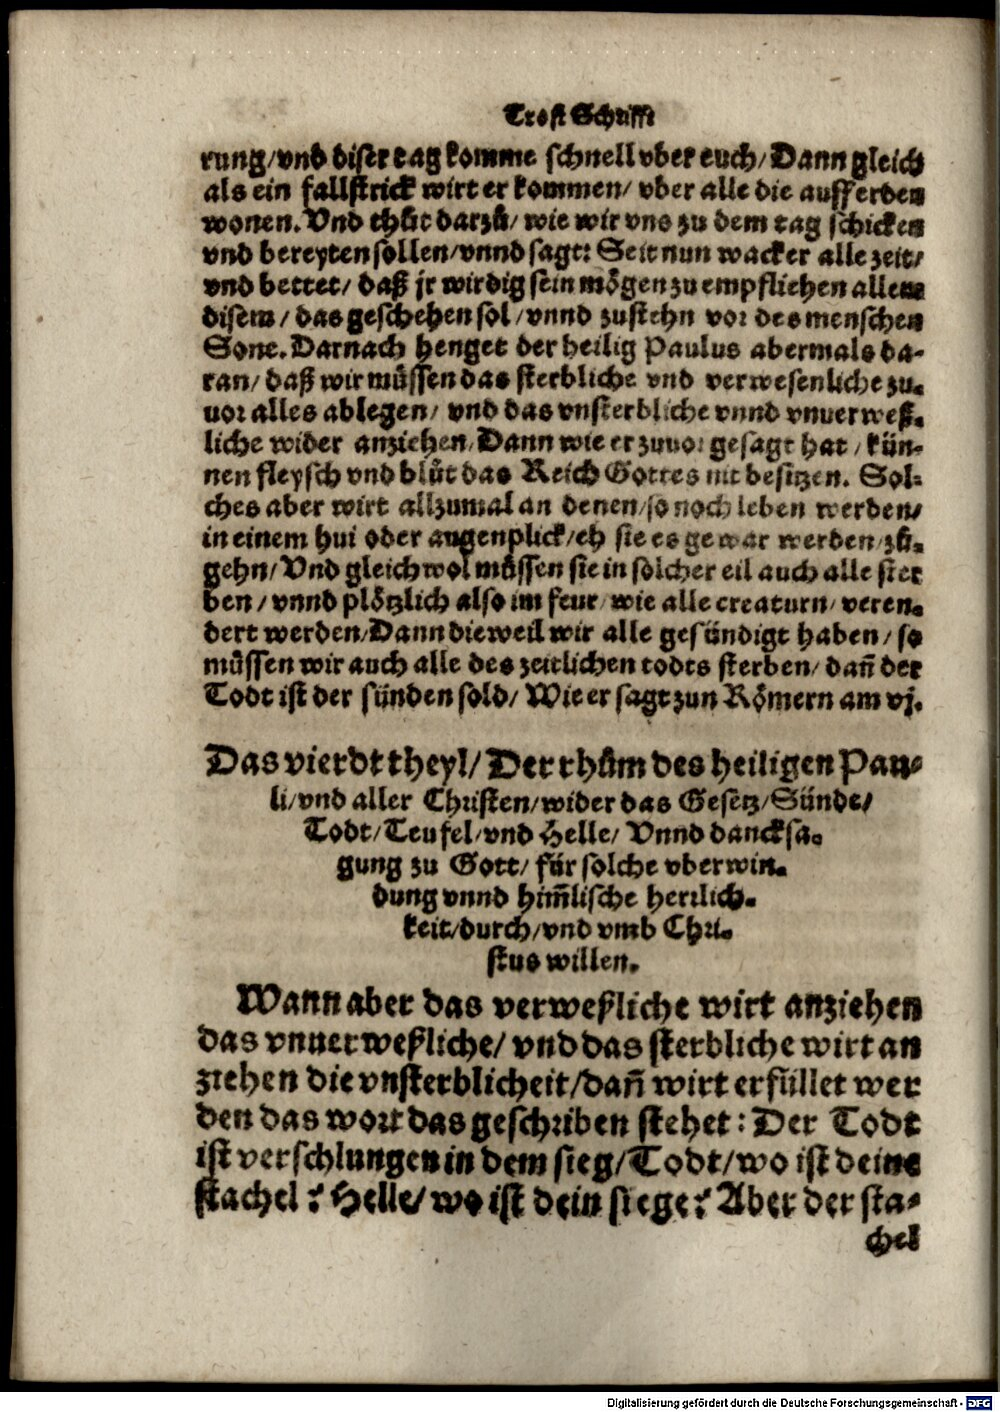 Trost Schrifft
rung/vnd diser tag komme schnell vber euch/Dann gleich
als ein fallstrick wirt er kommen/ vber alle die auff erden
wonen. Vnd thůt darzů/ wie wir vns zu dem tag schicken
vnd bereyten sollen/vnnd sagt: Seit nun wacker alle zeit/
vnd bettet/ daß jr wirdig sein mögen zu empfliehen allem
disem/ das geschehen sol/vnnd zustehn vor des menschen
Sone. Darnach henget der heilig Paulus abermals da-
ran/ daß wir müssen das sterbliche vnd verwesenliche zu-
uor alles ablegen/ vnd das vnsterbliche vnnd vnuerweß-
liche wider anziehen/Dann wie er zuuor gesagt hat/ kün-
nen fleysch vnd blůt das Reich Gottes nit besitzen. Sol-
ches aber wirt allzumal an denen/so noch leben werden/
in einem hui oder augenplick/eh sie es gewar werden/zů-
gehn/Vnd gleichwol müssen sie in solcher eil auch alle ster
ben/vnnd plötzlich also im feur/wie alle creaturn/veren-
dert werden/Dann dieweil wir alle gesündigt haben/so
müssen wir auch alle des zeitlichen todts sterben/ dañ der
Todt ist der sünden sold/ Wie er sagt zun Römern am vj.
Das vierdt theyl/ Der rhům des heiligen Pau-
li/vnd aller Christen/wider das Gesetz/Sünde/
Todt/Teufel/vnd Helle/ Vnnd dancksa-
gung zu Gott/ für solche vberwin-
dung vnnd him̃lische herrlich-
keit/durch/vnd vmb Chri-
stus willen.
Wann aber das verweßliche wirt anziehen
das vnuerweßliche/ vnd das sterbliche wirt an
ziehen die vnsterblicheit/dañ wirt erfüllet wer
den das wort das geschriben stehet: Der Todt
ist verschlungen in dem sieg/Todt/wo ist deine
stachel? Helle/wo ist dein siege? Aber der sta-
chel
Digitalisierung gefördert durch die Deutsche Forschungsgemeinschaft - DFG